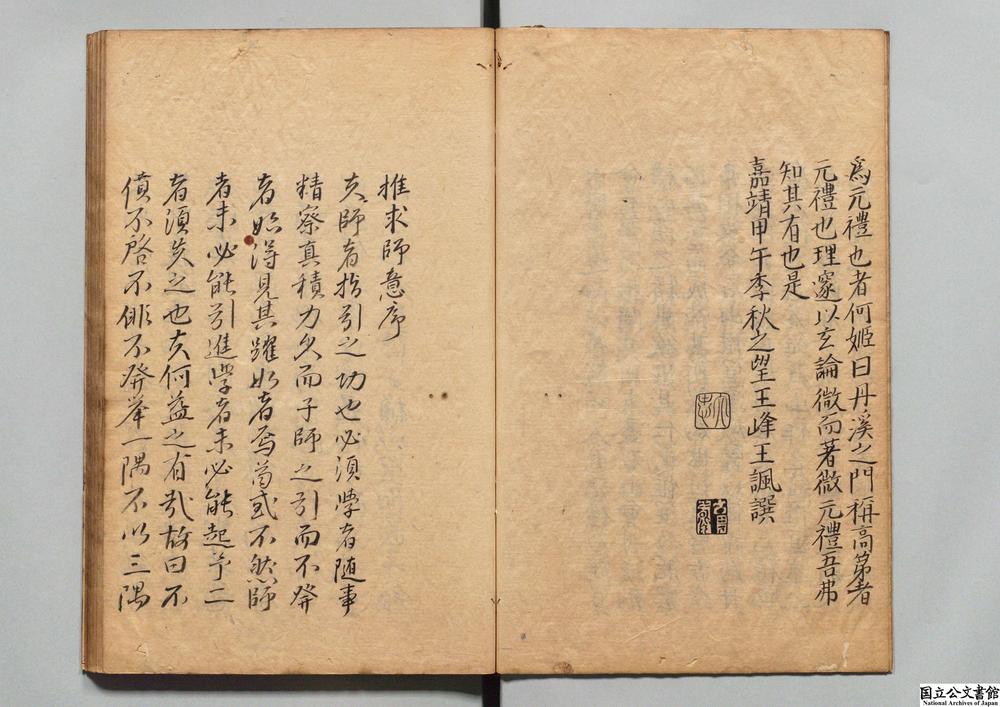 爲元禮也者何姬曰丹溪之門稱高第者
元禮也理邃以玄論微而著微元禮吾弗
知其有也是
嘉靖甲午季秋之望王峰王諷譔
推求師意序
夫師者指引之功也必須學者随事
精察真積力久而子師之引而不發
者始得見其躍如者焉苟或不然師
者未必能引進學者未必能起予二
者須失之也夫何益之有哉故曰不
憤不啓不悱不發举一隅不以三隅
国立公文書館
National Archives of Japan